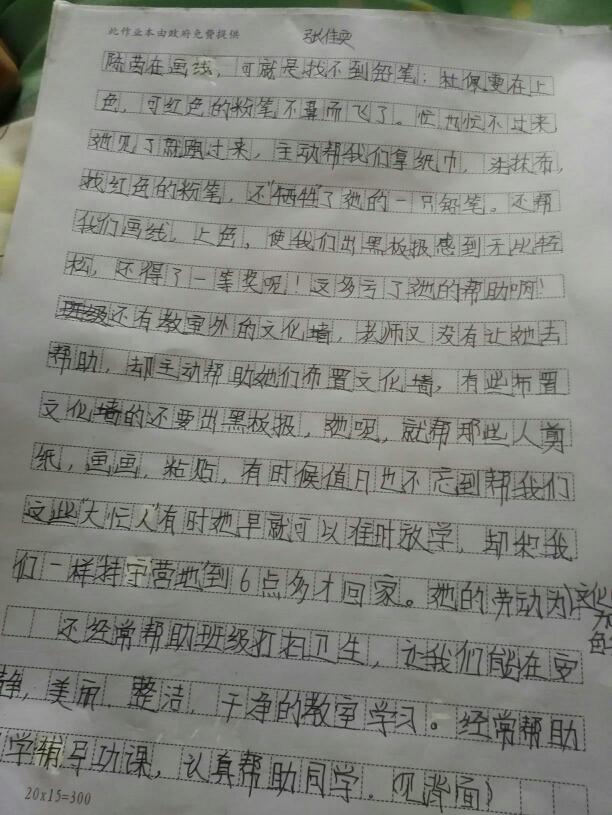 此作业本由政府免费提供
张佳
陈茜在画线，可就是找不到铅笔；杜佩雯在上
色，可红色的粉笔不翼而飞了。忙也忙不过来，
她见了就跑过来，主动帮我们拿纸巾，洗抹布，
找红色的粉笔，还"牺牲"了她的一只铅笔。还帮
我们画线，上色，使我们出黑板报感到无比轻
松，还得了一等奖呢！这多亏了她的帮助啊！
班级还有教室外的文化墙，老师又没有让她去
帮助，却主动帮助她们布置文化墙，有些布置
文化墙的还要出黑板报，她呢，就帮那些人剪
纸，画画，粘贴，有时候值日也不忘到帮我们
这些"大忙人"有时她早就可以准时放学，却和我
们一样持守营地到6点多才回家。她的劳动为文化
还经常帮助班级打扫卫生，让我们能在安
静，美丽，整洁，干净的教室学习。经常帮助
学辅导功课，认真帮助同学。（见背面）
20x15=300